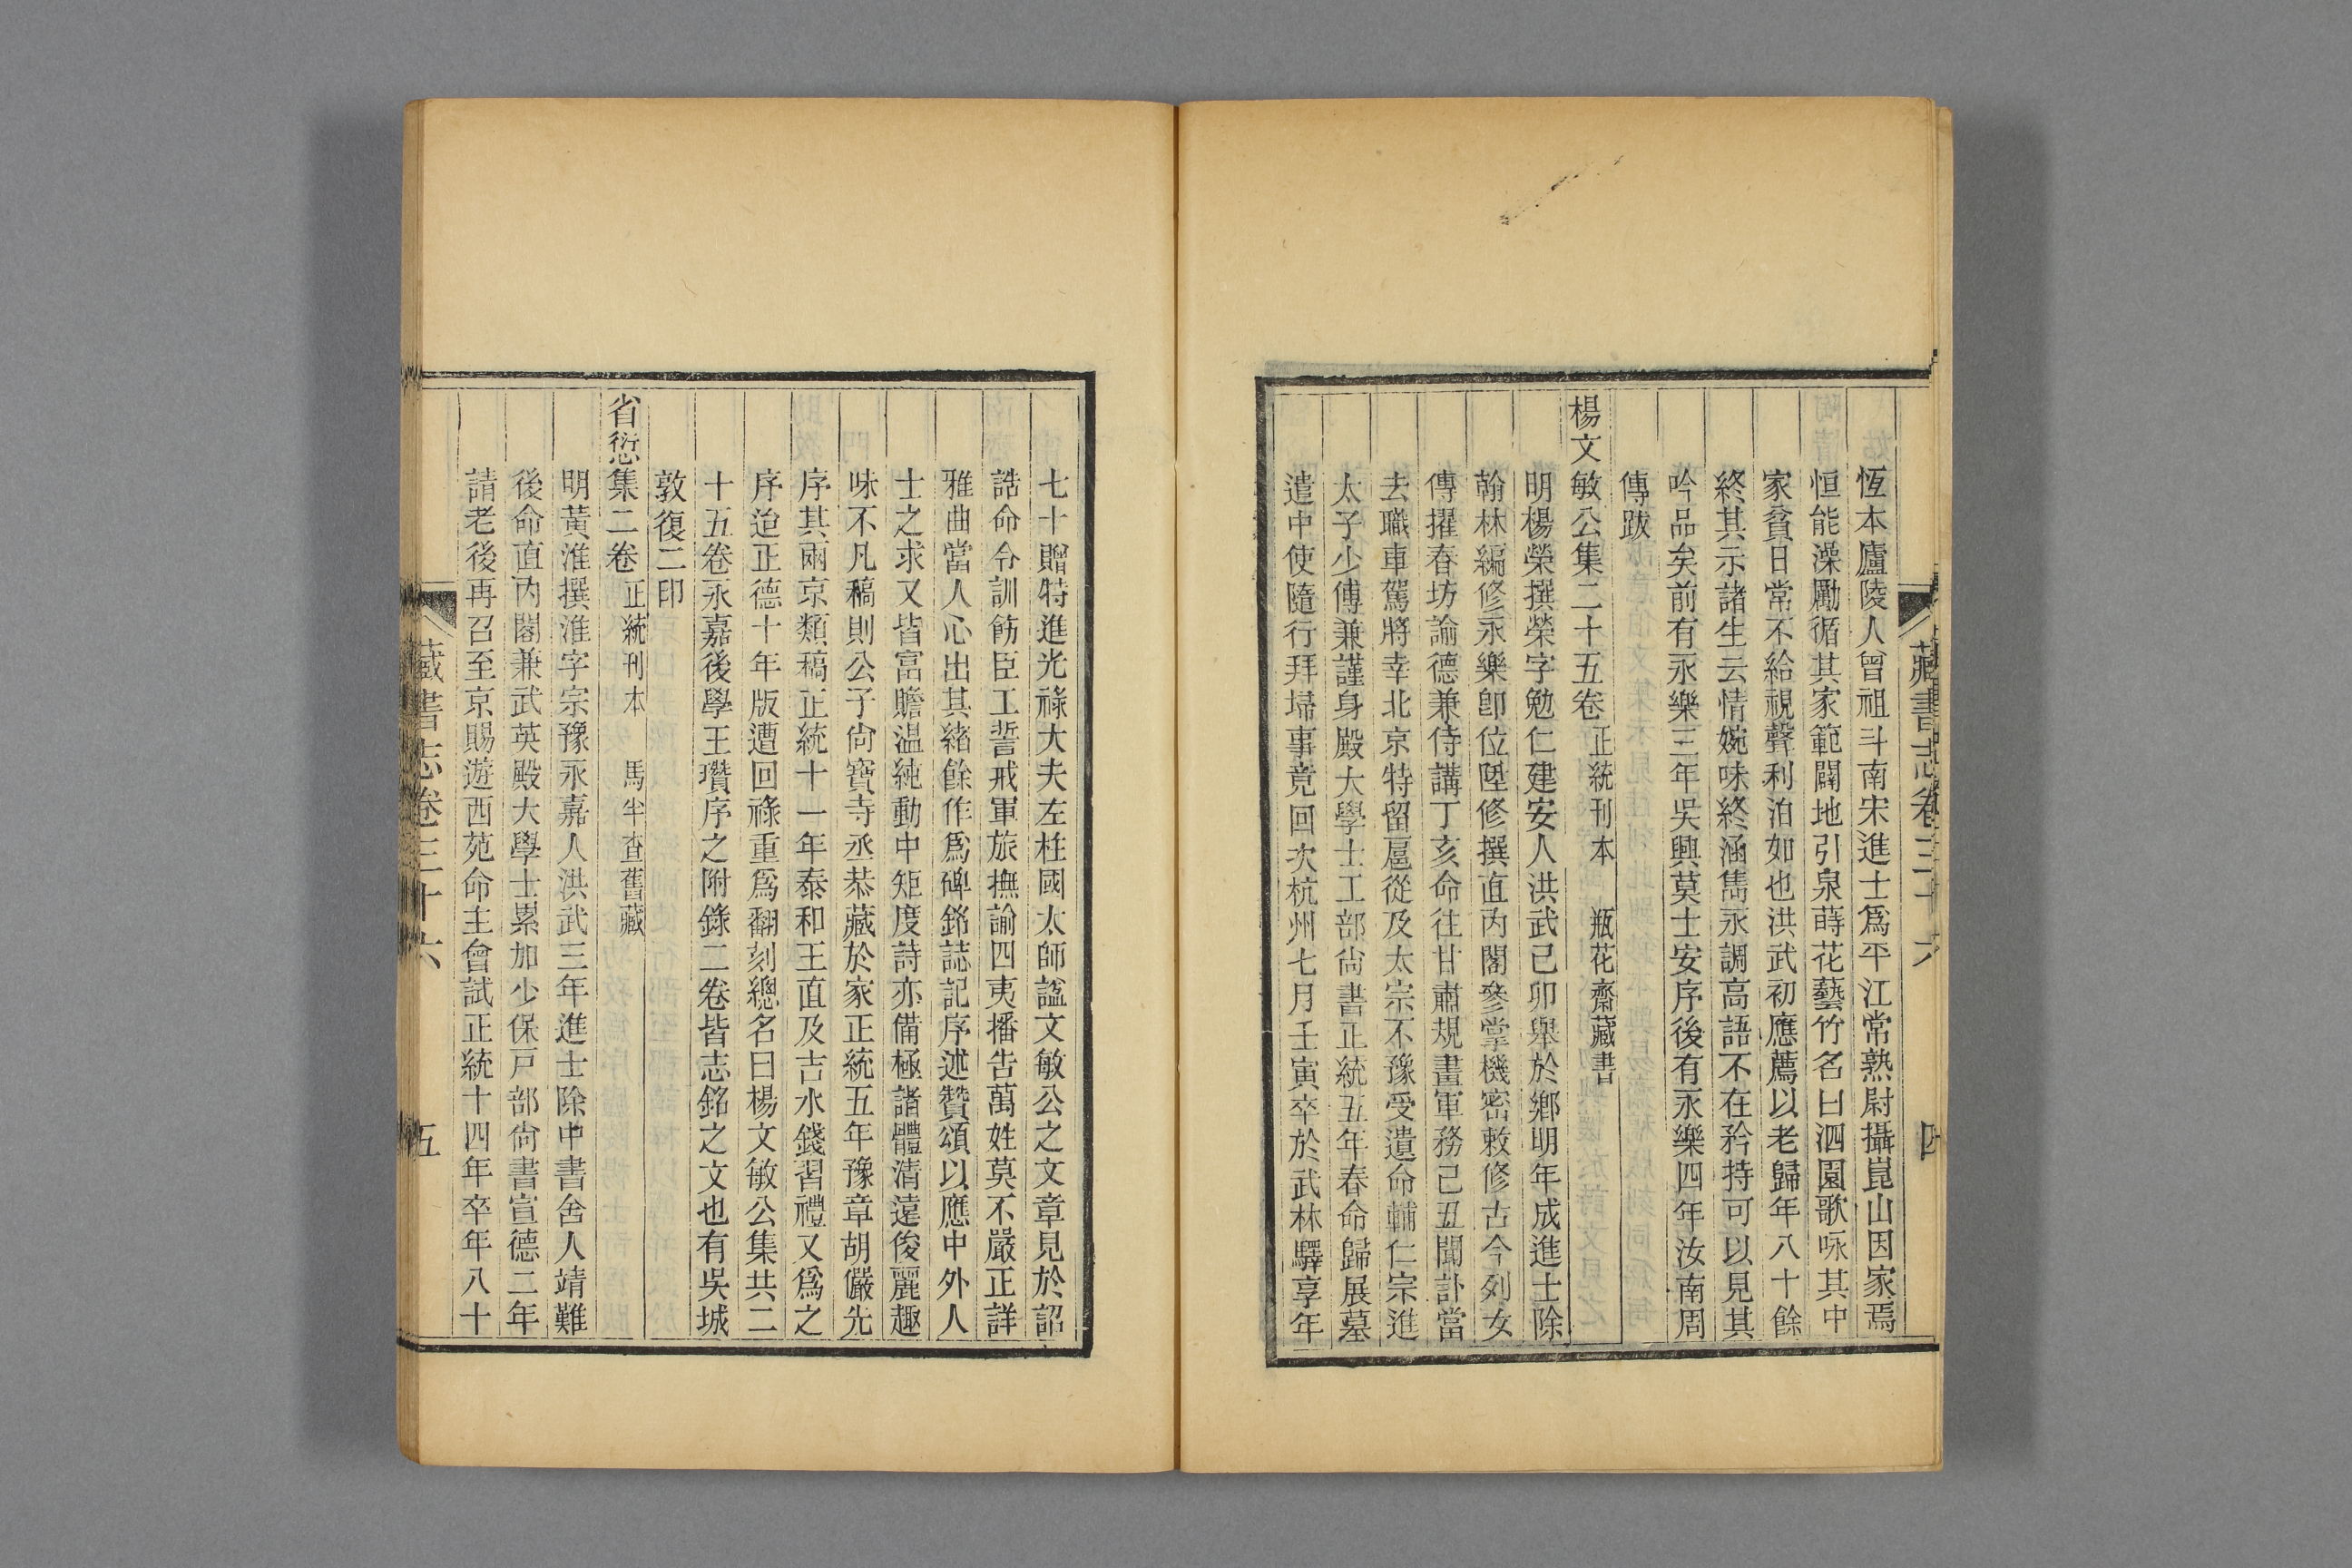 恆本廬陵人曾祖斗南宋進士爲平江常熟尉攝崑山因家焉
恒能澡勵循其家範闢地引泉蒔花藝竹名曰泗園歌咏其中
家貧日常不給視聲利泊如也洪武初應薦以老歸年八十餘
終其示諸生云情婉味終涵雋永調高語不在矜持可以見其
吟品矣前有永樂三年吳興莫士安序後有永樂四年汝南周
傳跋
楊文敏公集二十五卷 正統刊本 瓶花齋藏書
明楊榮撰榮字勉仁建安人洪武己卯舉於鄉明年成進士除
翰林編修永樂卽位陞修撰直內閣參掌機密敕修古今列女
傳擢春坊諭德兼侍講丁亥命往甘肅規畫軍務己丑聞訃當
去職車駕將幸北京特留扈從及太宗不豫受遺命輔仁宗進
太子少傅兼謹身殿大學士工部尙書正統五年春命歸展墓
遣中使隨行拜埽事竟回次杭州七月壬寅卒於武林驛享年
藏書志卷三十六 四
七十贈特進光祿大夫左柱國太師諡文敏公之文章見於詔
誥命令訓飭臣工誓戒軍旅撫諭四夷播告萬姓莫不嚴正詳
雅曲當人心出其緒餘作爲碑銘誌記序述贊頌以應中外人
士之求又皆富贍温純動中矩度詩亦備極諸體清遠俊麗趣
味不凡稿則公子尙寶寺丞恭藏於家正統五年豫章胡儼光
序其兩京類稿正統十一年泰和王直及吉水錢習禮又爲之
序迨正德十年版遭回祿重爲翻刻總名曰楊文敏公集共二
十五卷永嘉後學王瓚序之附錄二卷皆志銘之文也有吳城
敦復二印
省愆集二卷 正統刊本 馬半查舊藏
明黃淮撰淮字宗豫永嘉人洪武三年進士除中書舍人靖難
後命直內閣兼武英殿大學士累加少保戸部尙書宣德二年
請老後再召至京賜遊西苑命主會試正統十四年卒年八十
藏書志卷三十六 五